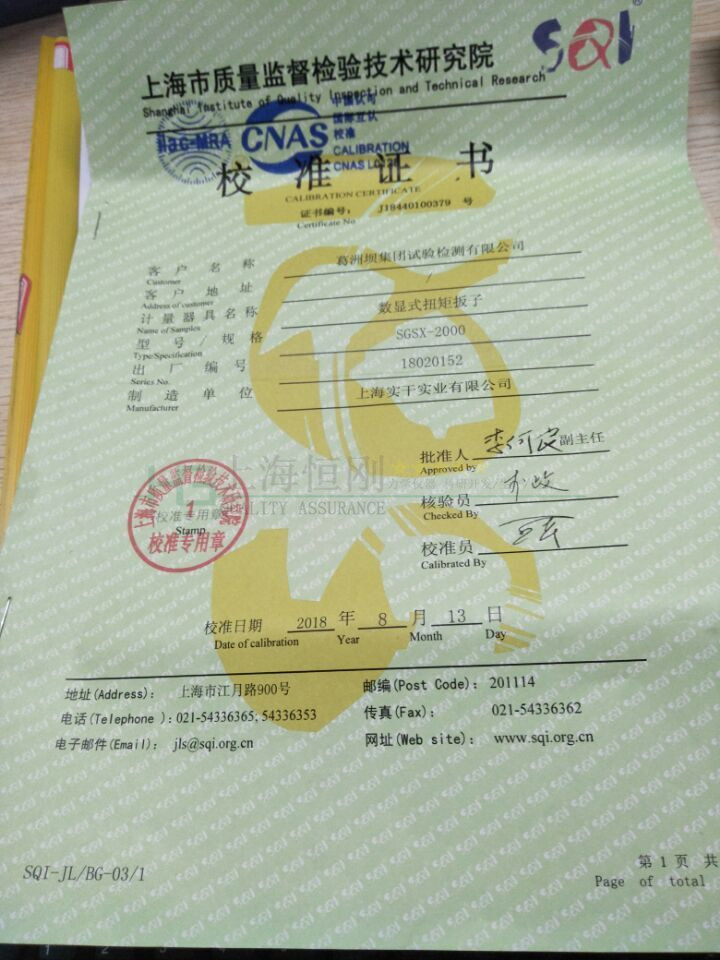 SQI
上海市质量监督检验技术研究院
Shanghai Institute of Quality Inspection and Technical Research
ilac-MRA
CNAS
中国认可
国际互认
校准
CALIBRATION
CNAS
校准证书
CALIBRATION CERTIFICATE
证书编号: J18440100379 号
Certificate No
客户名称 葛洲坝集团试验检测有限公司
Customer
客户地址 /
Address of customer
计量器具名称 数显式扭矩扳子
Name of Samples
型号/规格 SGSX-2000
Type/Specification
出厂编号 18020152
Series No.
制造单位 上海实干实业有限公司
Manufacturer
批准人 副主任
Approved by
核验员
Checked By
校准员
Calibrated By
上海恒刚
QUALITY ASSURANCE
上海市质量监督检验技术研究院
1
校准专用章
Stamp
校准专用章
校准日期 2018 年 8 月 13 日
Date of calibration Year Month Day
地址(Address): 上海市江月路900号 邮编(Post Code): 201114
电话(Telephone ): 021-54336365, 54336353 传真(Fax): 021-54336362
电子邮件(Email): jls@sqi.org.cn 网址(Web site): www.sqi.org.cn
SQI-JL/BG-03/1
第 1 页 共
Page of total